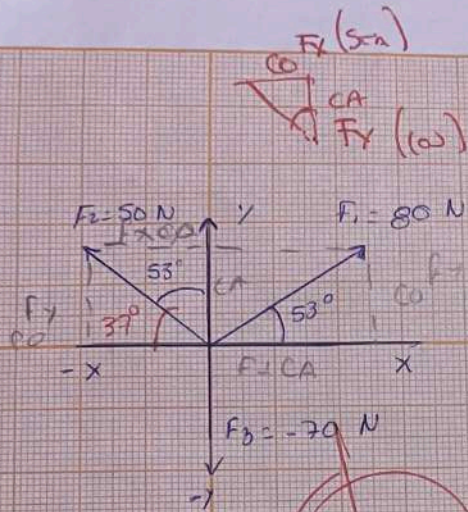 Fx (Sen)
CO
CA
Fy (Cos)
F2=50 N
y
F1 = 80 N
Fx CA
53°
CA
Fy
CO
37°
53°
CO
Fy
-x
Fx CA
x
F3 = -70 N
-y